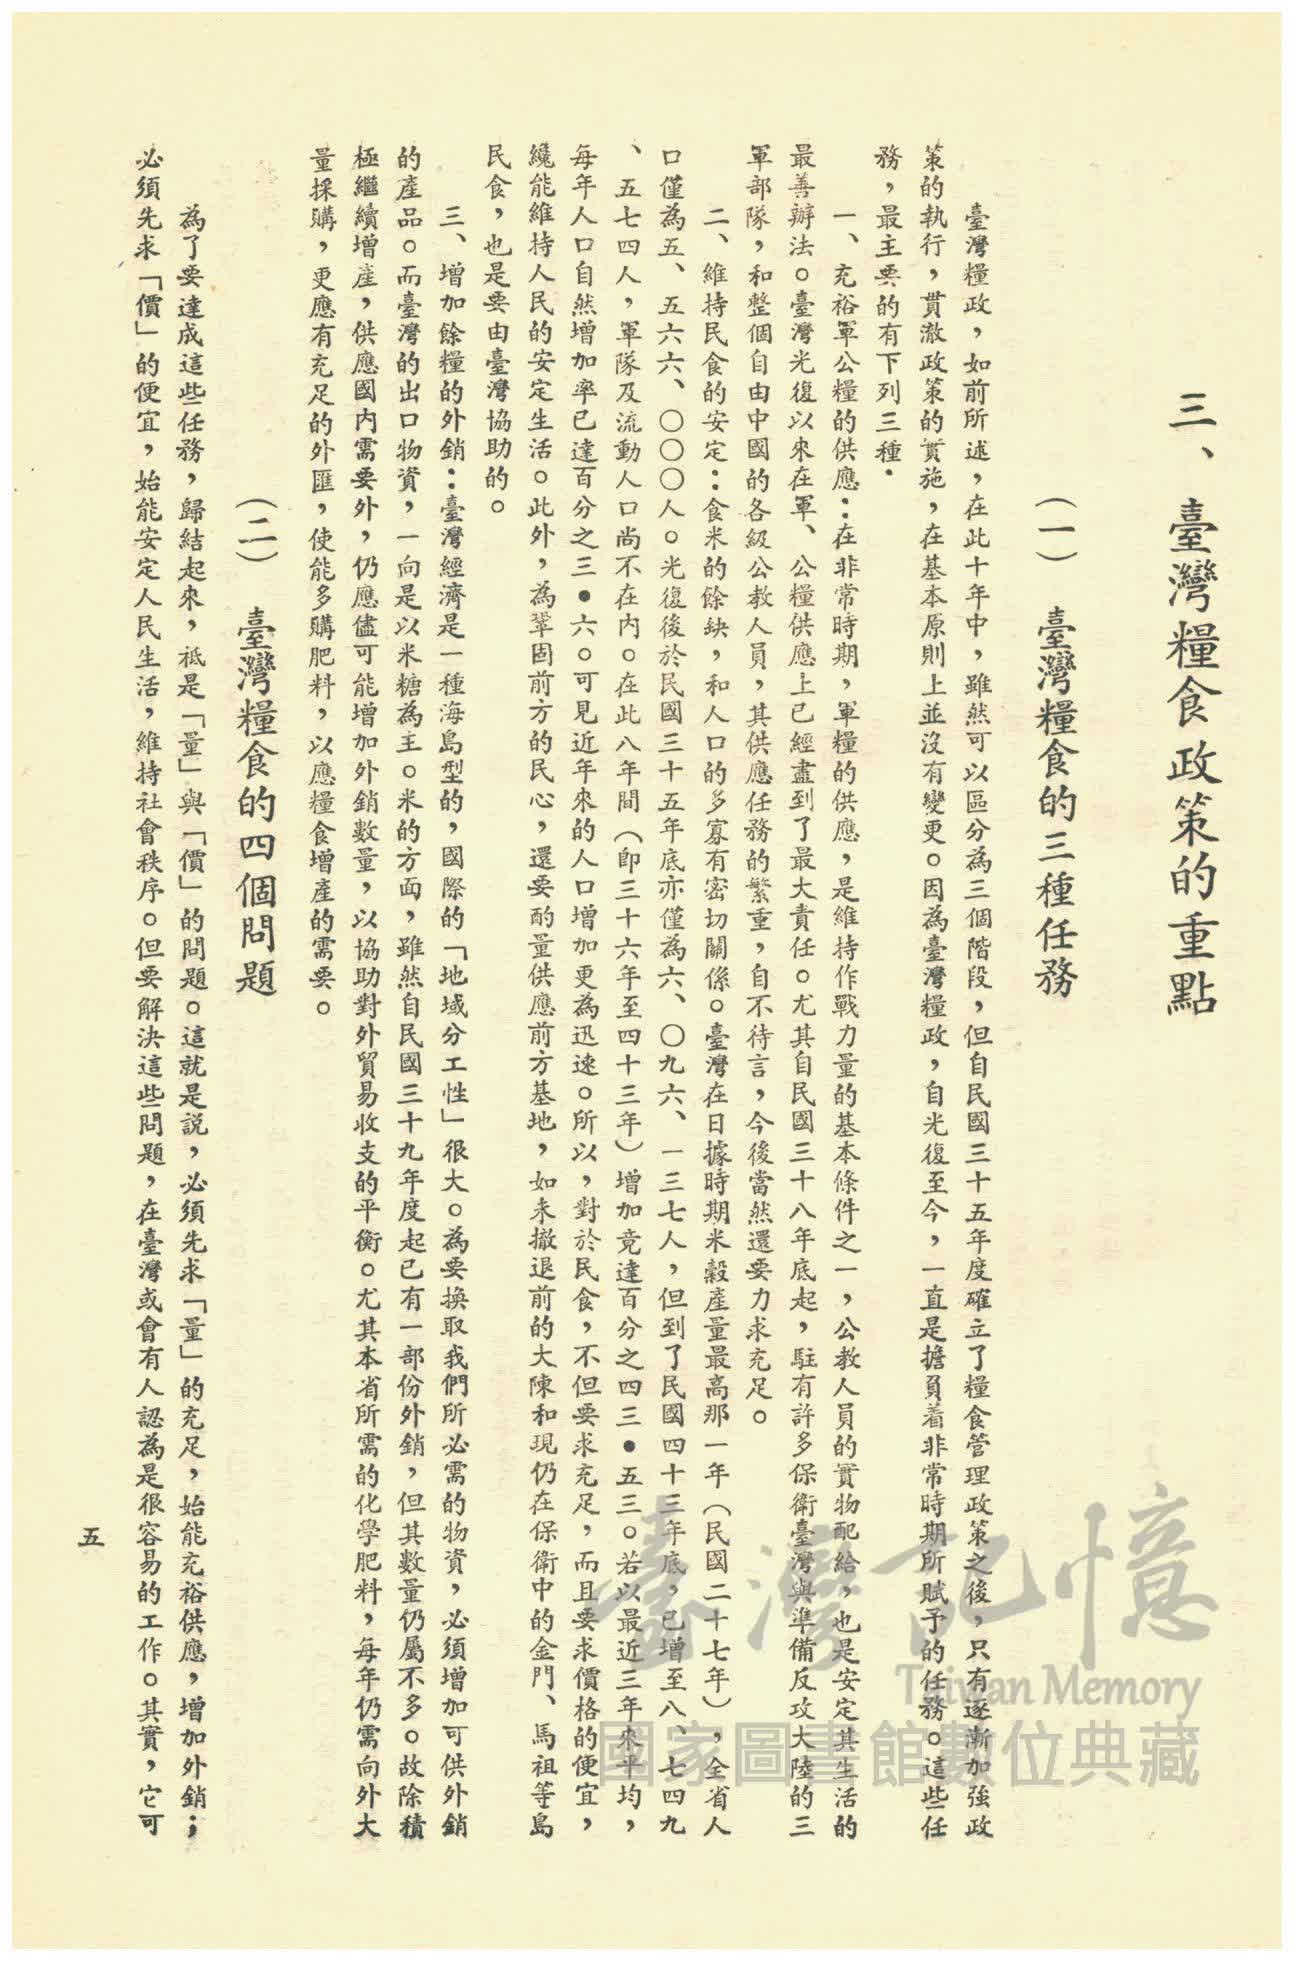 三、臺灣糧食政策的重點
(一) 臺灣糧食的三種任務
臺灣糧政，如前所述，在此十年中，雖然可以區分為三個階段，但自民國三十五年度確立了糧食管理政策之後，只有逐漸加強政
策的執行，貫澈政策的實施，在基本原則上並沒有變更。因為臺灣糧政，自光復至今，一直是擔負着非常時期所賦予的任務。這些任
務，最主要的有下列三種．
一、充裕軍公糧的供應：在非常時期，軍糧的供應，是維持作戰力量的基本條件之一，公教人員的實物配給，也是安定其生活的
最善辦法。臺灣光復以來在軍、公糧供應上已經盡到了最大責任。尤其自民國三十八年底起，駐有許多保衛臺灣與準備反攻大陸的三
軍部隊，和整個自由中國的各級公教人員，其供應任務的繁重，自不待言，今後當然還要力求充足。
二、維持民食的安定：食米的餘缺，和人口的多寡有密切關係。臺灣在日據時期米穀產量最高那一年（民國二十七年），全省人
口僅為五、五六六、〇〇〇人。光復後於民國三十五年底亦僅為六、〇九六、一三七人，但到了民國四十三年底，已增至八、七四九
、五七四人，軍隊及流動人口尚不在內。在此八年間（卽三十六年至四十三年）增加竟達百分之四三•五三。若以最近三年來平均，
每年人口自然增加率已達百分之三•六。可見近年來的人口增加更為迅速。所以，對於民食，不但要求充足，而且要求價格的便宜，
纔能維持人民的安定生活。此外，為鞏固前方的民心，還要酌量供應前方基地，如未撤退前的大陳和現仍在保衛中的金門、馬祖等島
民食，也是要由臺灣協助的。
三、增加餘糧的外銷：臺灣經濟是一種海島型的，國際的「地域分工性」很大。為要換取我們所必需的物資，必須增加可供外銷
的產品。而臺灣的出口物資，一向是以米糖為主。米的方面，雖然自民國三十九年度起已有一部份外銷，但其數量仍屬不多。故除積
極繼續增產，供應國內需要外，仍應儘可能增加外銷數量，以協助對外貿易收支的平衡。尤其本省所需的化學肥料，每年仍需向外大
量採購，更應有充足的外匯，使能多購肥料，以應糧食增產的需要。
(二) 臺灣糧食的四個問題
為了要達成這些任務，歸結起來，祇是「量」與「價」的問題。這就是説，必須先求「量」的充足，始能充裕供應，增加外銷；
必須先求「價」的便宜，始能安定人民生活，維持社會秩序。但要解決這些問題，在臺灣或會有人認為是很容易的工作。其實，它可
五
臺灣記憶
Taiwan Memory
國家圖書館數位典藏